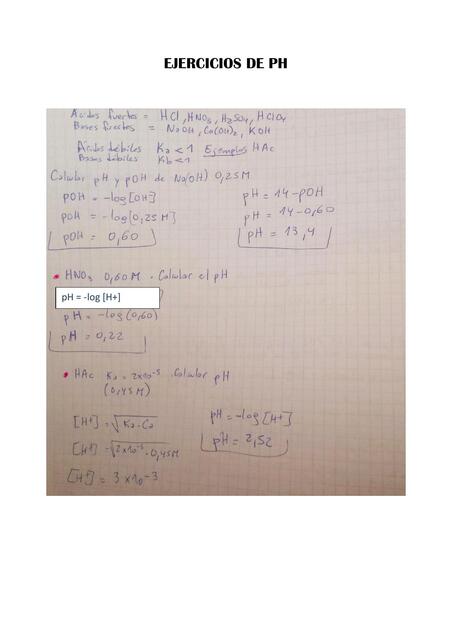 EJERCICIOS DE PH
Ácidos fuertes = HCl, HNO3, H2SO4, HClO4
Bases fuertes = NaOH, Ca(OH)2, KOH
Ácidos débiles Ka < 1 Ejemplos HAc
Bases débiles Kb < 1
Calcular pH y pOH de Na(OH) 0,25M
pOH = -log[OH]
pOH = -log[0,25M]
pOH = 0,60
pH = 14-pOH
pH = 14-0,60
pH = 13,4
HNO3 0,60M. Calcular el pH
pH = -log [H+]
pH = -log(0,60)
pH = 0,22
HAc Ka = 2x10-5. Calcular pH
(0,45M)
[H+] = √Ka·Ca
[H+] = √2x10-5·0,45M
[H+] = 3x10-3
pH = -log[H+]
pH = 2,52